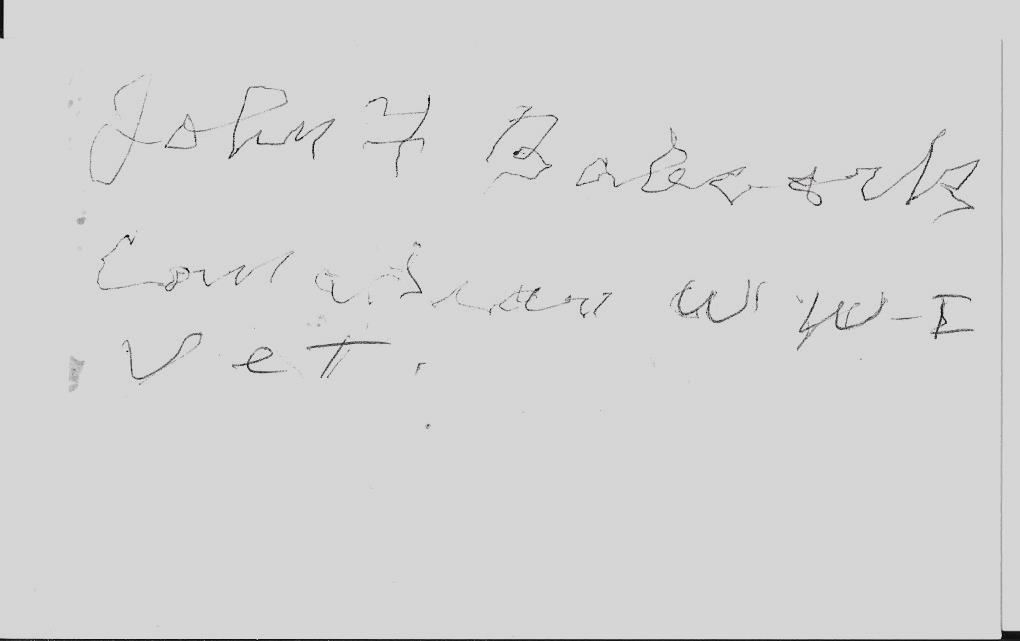 John F Babcock
Canadian W W-I
Vet.